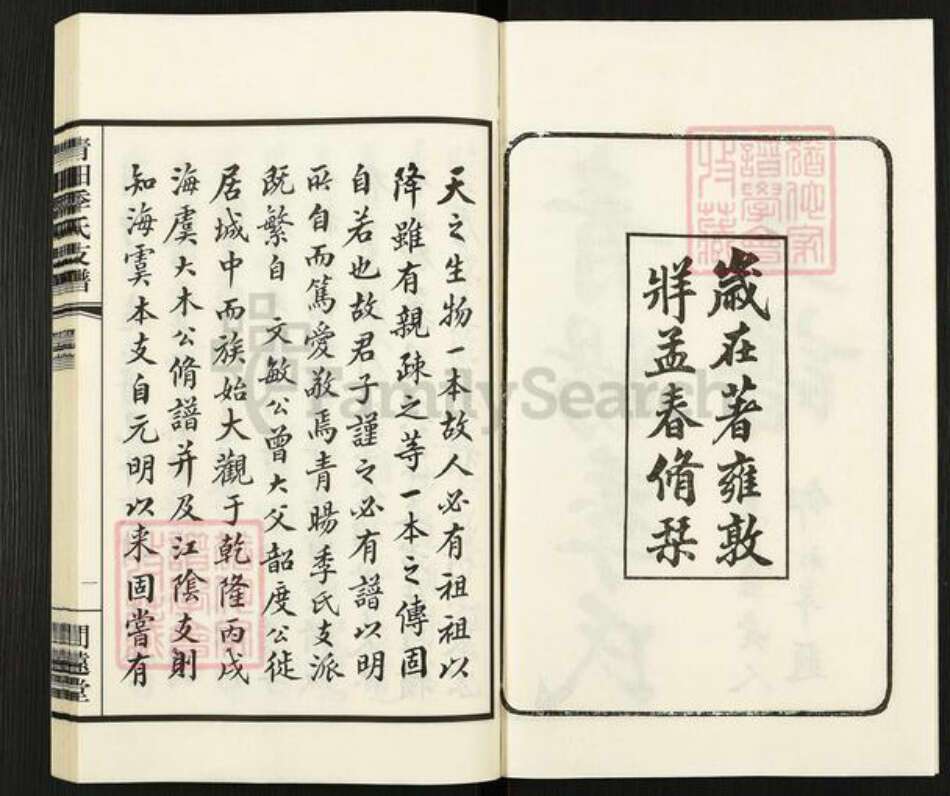 歲在著雍敦
牂孟春脩栞
天之生物一本故人必有祖祖以
降雖有親疎之等一本之傳固
自若也故君子謹之必有譜以明
所自而篤愛敬焉青暘季氏支派
既繁自 文敏公曾大父韶度公徙
居城中而族始大觀于乾隆丙戌
海虞大木公脩譜并及江陰支則
知海虞本支自元明以来固嘗有
季氏支譜
一
FamilySearch